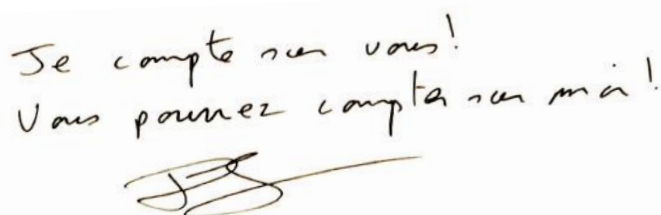 Je compte sur vous!
Vous pourrez compter sur moi!